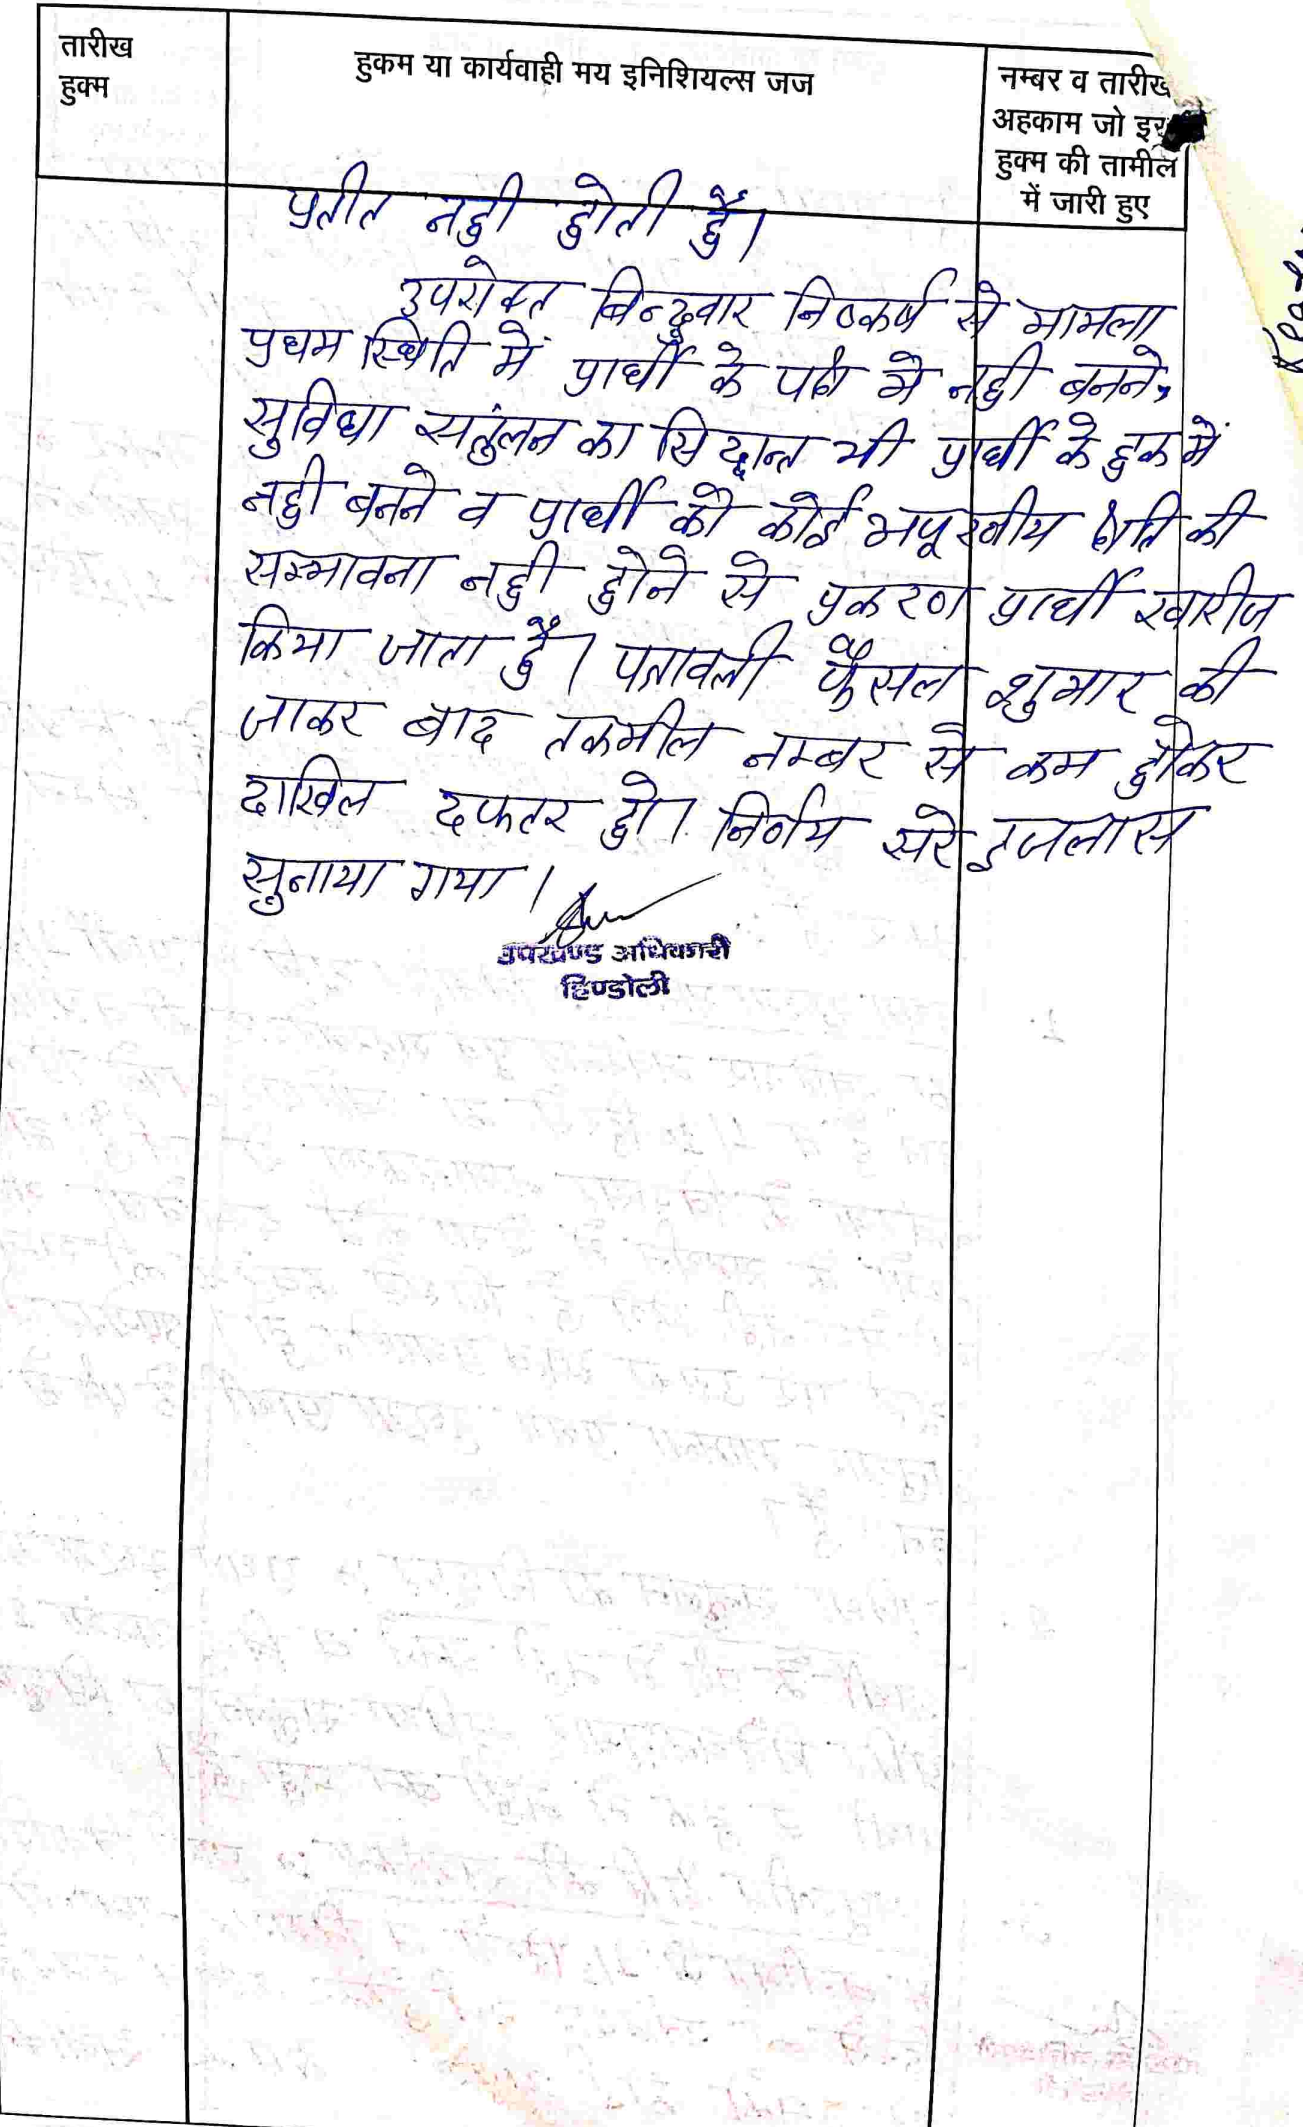 तारीख
हुक्म
हुकम या कार्यवाही मय इनिशियल्स जज
नम्बर व तारीख
अहकाम जो इस
हुक्म की तामील
में जारी हुए
प्रतीत नही होती है।
उपरोक्त बिन्दुवार निष्कर्ष से मामला
प्रथम स्थिति में प्रार्थी के पक्ष मे नही बनने,
सुविधा सतुंलन का सिद्वान्त भी प्रार्थी के हक में
नही बनने व प्रार्थी को कोई अपूरनीय क्षति की
सम्भावना नही होने से प्रकरण प्रार्थी खारीज
किया जाता है। पत्रावली फैसल शुमार की
जाकर बाद तकमील नम्बर से कम होकर
दाखिल दफतर हो। निर्णय सरे इजलास
सुनाया गया।
उपखण्ड अधिकारी
हिण्डोली